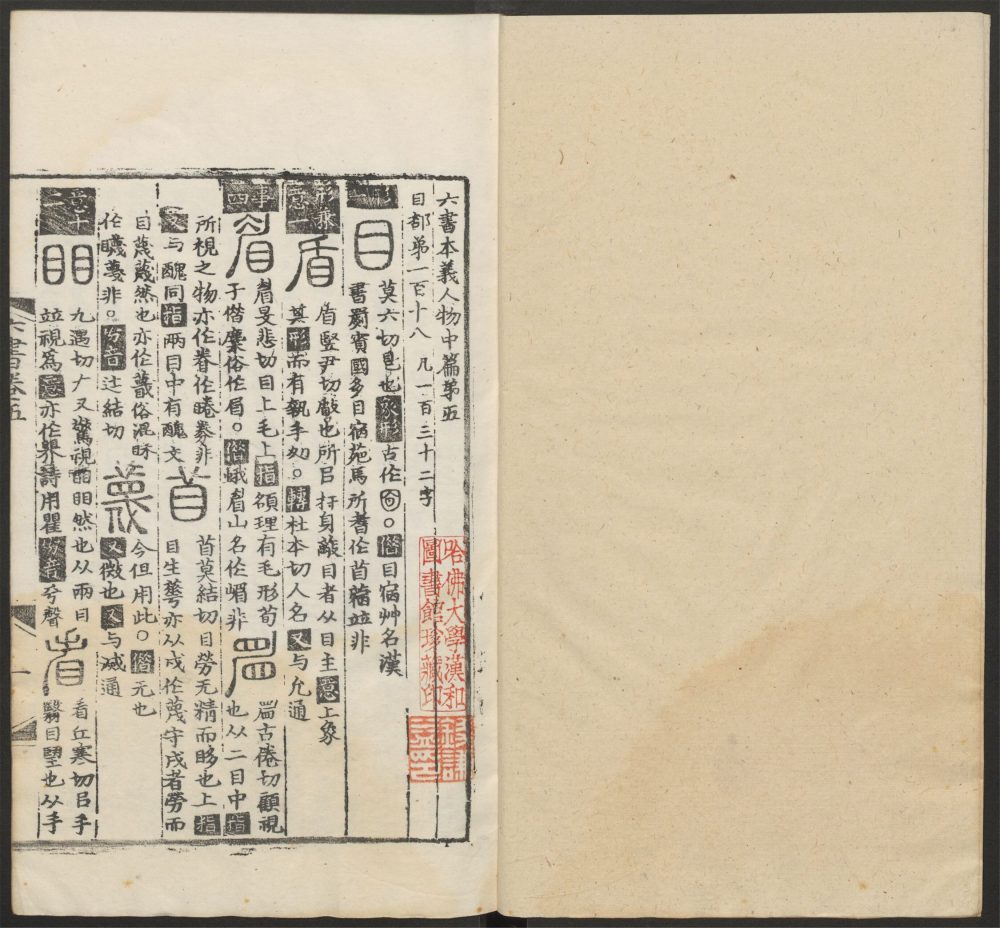 六書本義人物中篇第五
目部弟一百十八 凡一百三十二字
哈佛大學漢和
圖書館珍藏印
形一
目
莫六切皃也象形古作。借目宿艸名漢
書罽賓國多目宿苑馬所耆作苜蓿竝非
形兼意一
盾
盾豎尹切瞂也所㠯扞身蔽目者从目主意上象
其形而有執手処。轉杜本切人名又与允通
事四
眉
眉旻悲切目上毛上指頟理有毛形荀
子借麋俗作眉。借峨眉山名作嵋非
古倦切顧視
也从二目中指
所視之物亦作眷作睠非
又与醜同指兩目中有醜文
苜
苜莫結切目勞无精而眵也上指
目生瞢亦从戍作蔑守戍者勞而
目蔑蔑然也亦作俗混眜
作蔑非。方音辻結切
蔑
今但用此。借无也
又微也又与滅通
意十二
䀠
九遇切ナ又驚視䀠䀠然也从兩目
竝視爲意亦作界詩用瞿方音兮聲
看
看丘寒切㠯手
翳目朢也从手
六書卷五
一